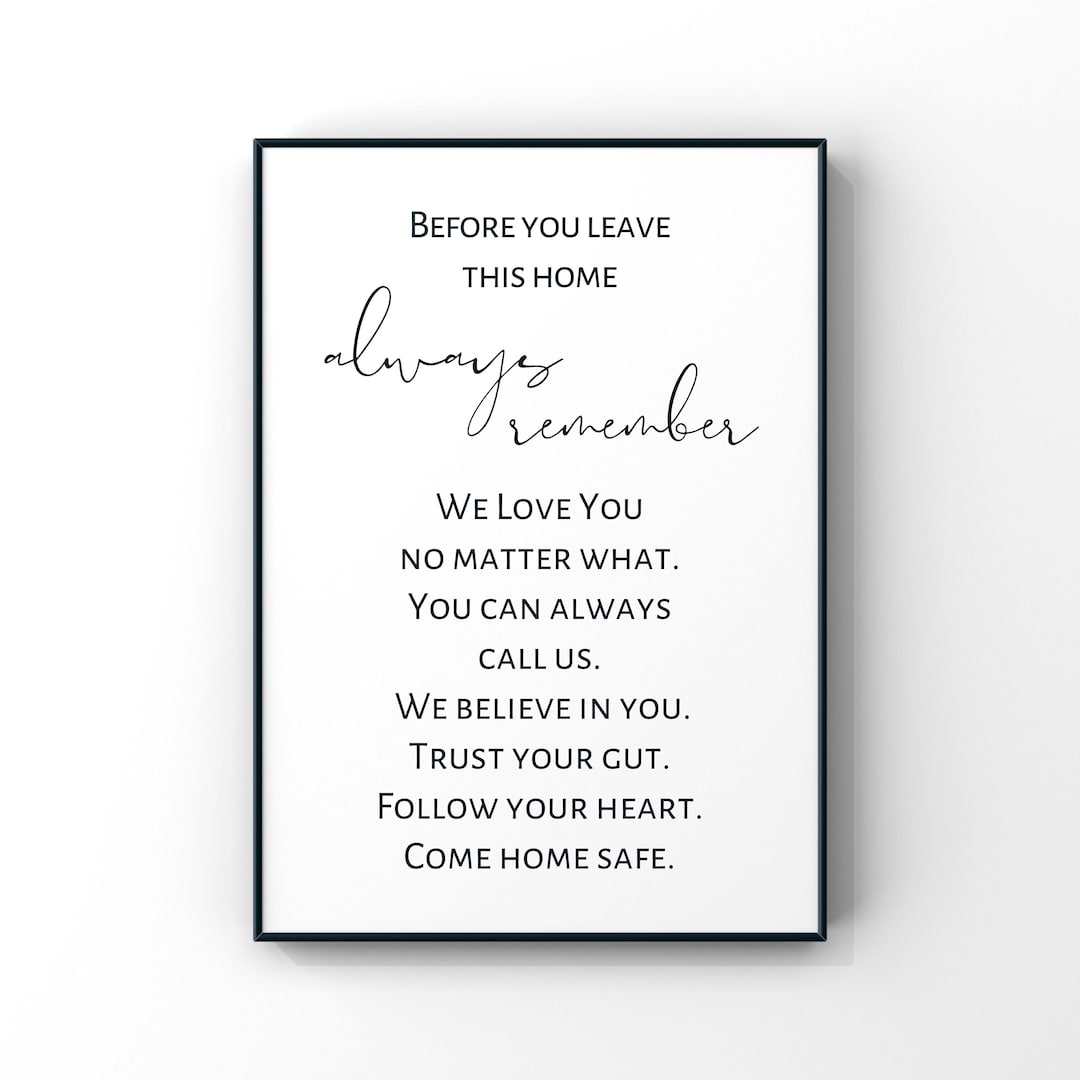 Before you leave
this home
always
remember
We Love You
no matter what.
You can always
call us.
We believe in you.
Trust your gut.
Follow your heart.
Come home safe.